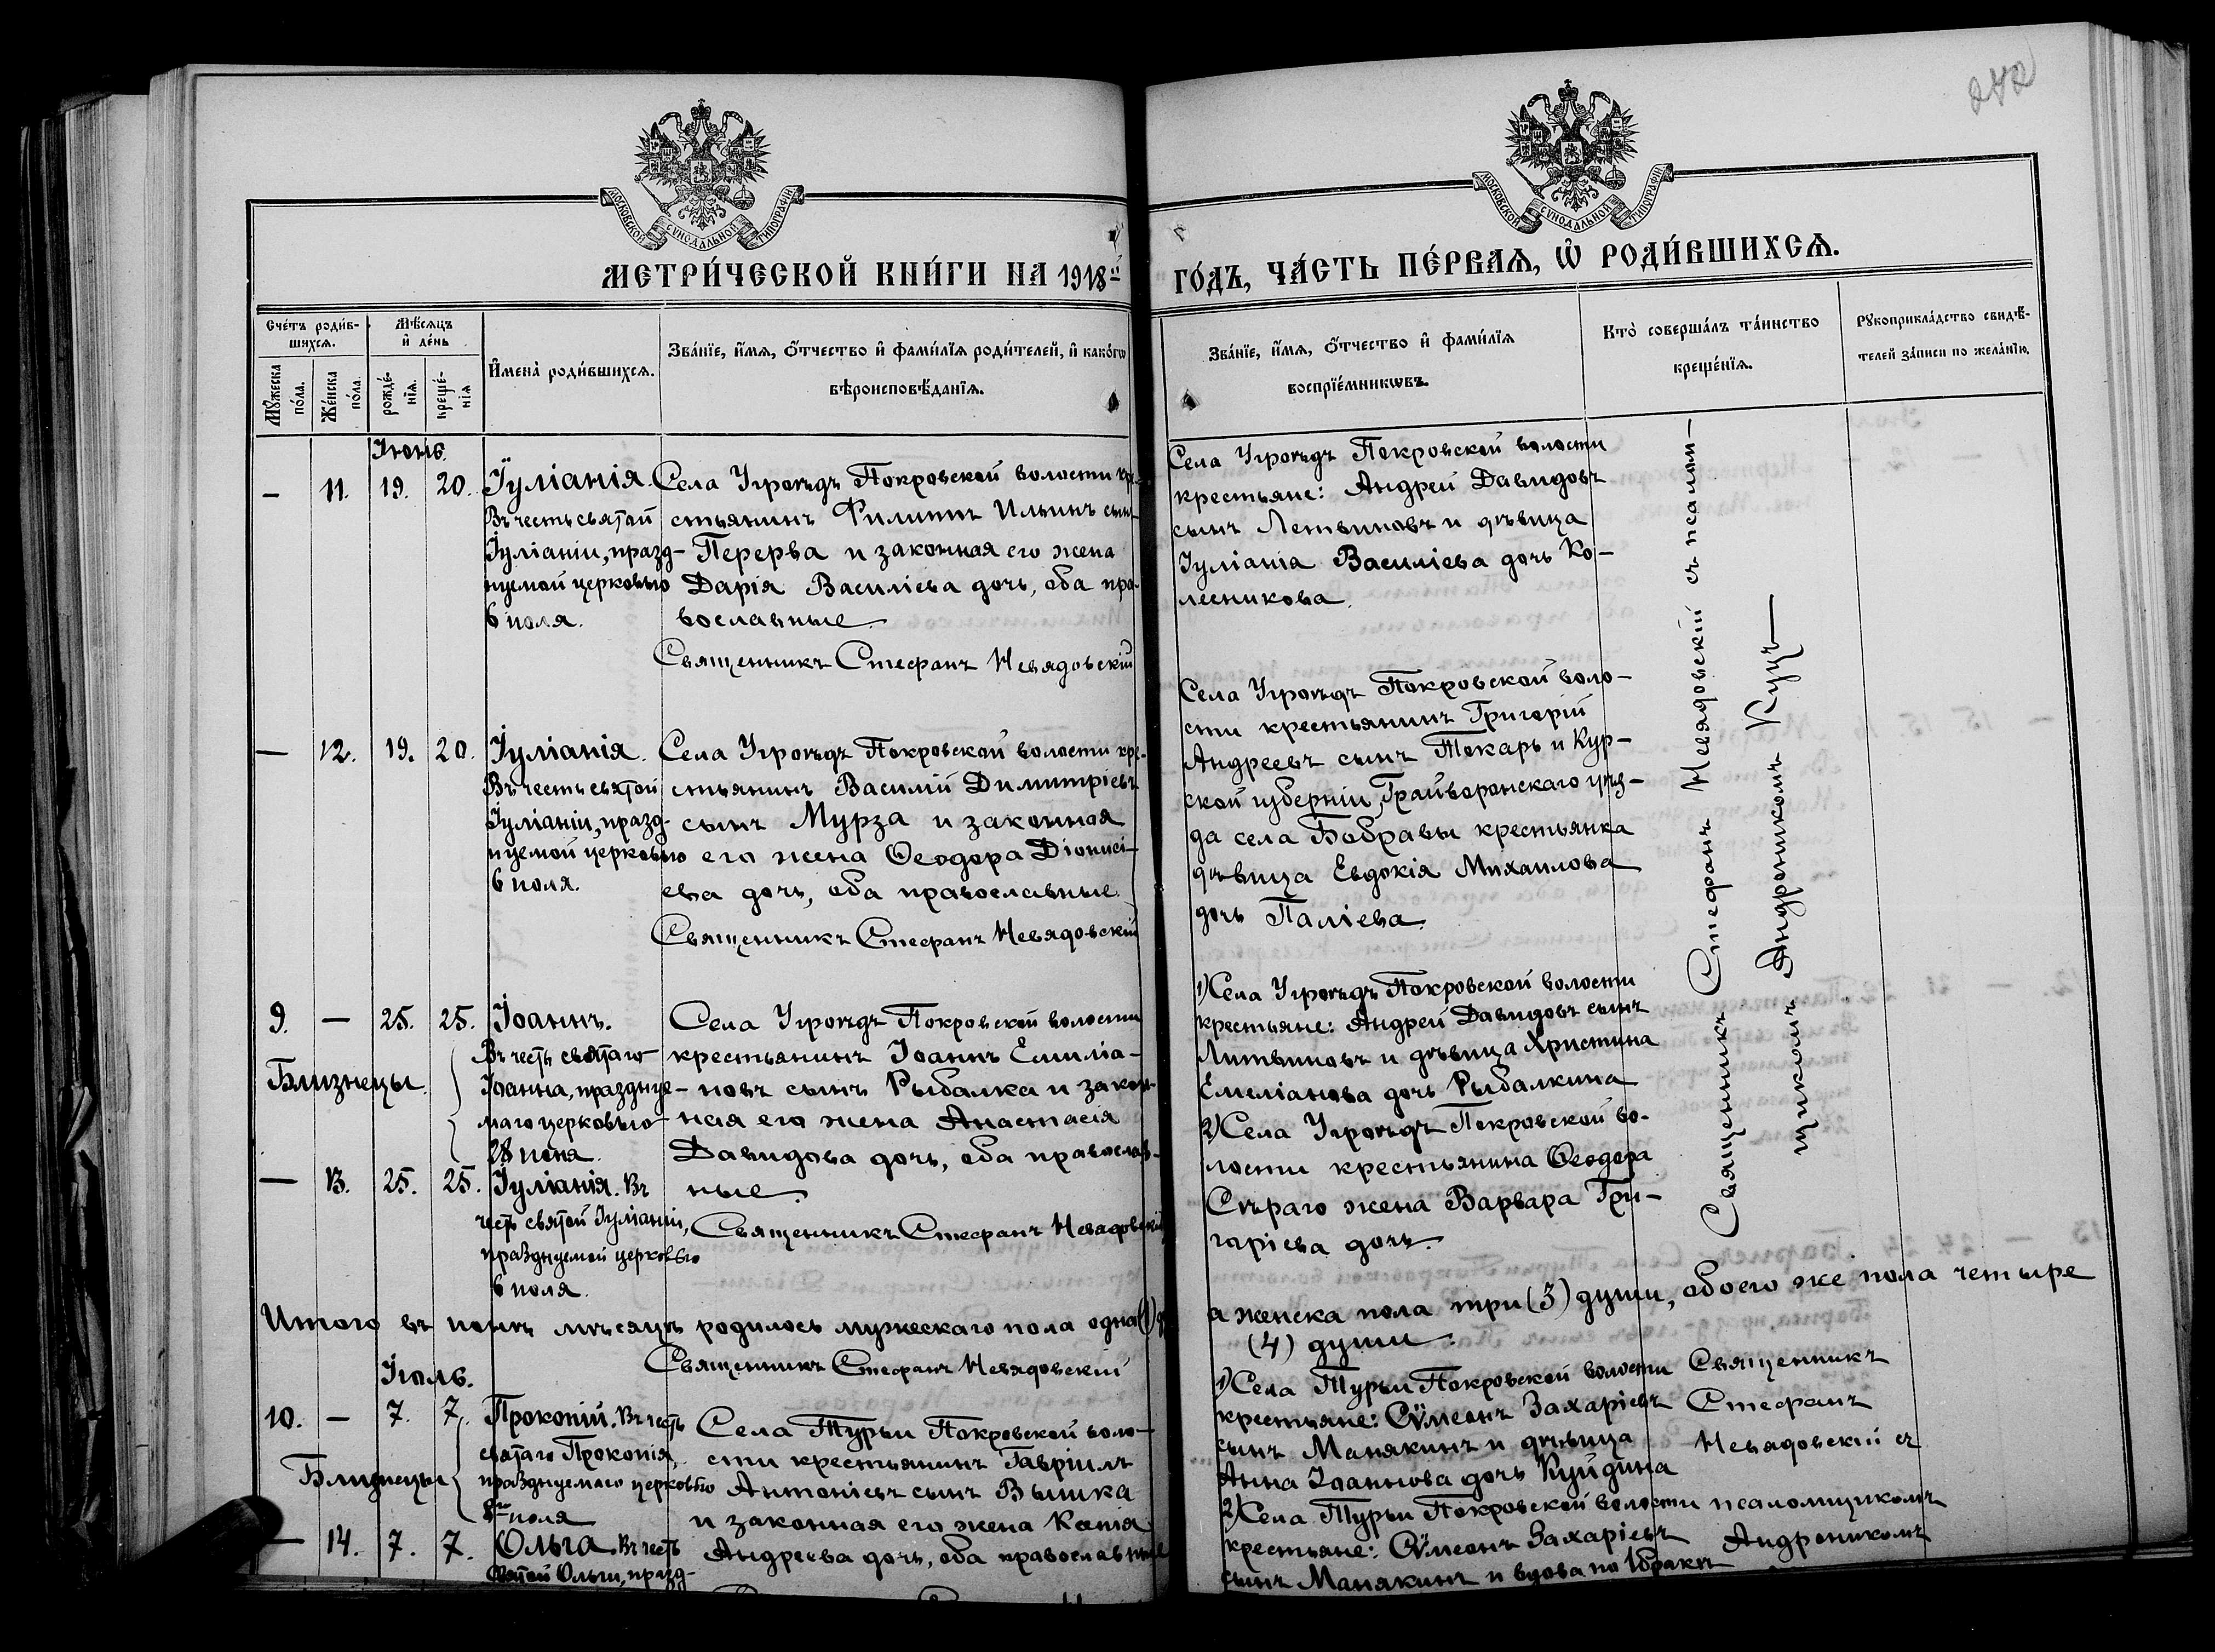 242
МОСКОВСКОЙ СѴНОДАЛЬНОЙ ТИПОГРАФІИ
МОСКОВСКОЙ СѴНОДАЛЬНОЙ ТИПОГРАФІИ
МЕТРИ́ЧЕСКОЙ КНИ́ГИ НА 1918й
ГО́ДЪ, ЧА́СТЬ ПЕ́РВАѦ, Ѡ҆ РОДИ́ВШИХСѦ.
Сче́тъ роди́в-
шихсѧ.
Мѣ́сѧцъ
и҆ де́нь
Мꙋ́жеска
по́ла.
Же́нска
по́ла.
рожде́-
нїѧ.
креще́-
нїѧ
И҆мена̀ роди́вшихсѧ.
Зва́нїе, и҆́мѧ, ѻ҆́тчество и҆ фами́лїѧ роди́телей, и҆ како́гѡ
вѣроисповѣ́данїѧ.
Зва́нїе, и҆́мѧ, ѻ҆́тчество и҆ фами́лїѧ
воспрїе́мникѡвъ.
Кто̀ соверша́лъ та́инство
креще́нїѧ.
Рꙋкоприкла́дство свидѣ́-
телей за́писи по жела́нїю.
Іюнь.
— 11. 19. 20. Іуліанія.
Въ честь святой
Іуліаніи, празд-
нуемой церковью
6 іюля.
Села Угроѣдъ Покровской волости кре-
стьянинъ Филиппъ Ильинъ сынъ
Перерва и законная его жена
Дарія Василіева дочь, оба пра-
вославные
Священникъ Стефанъ Невядовскій
Села Угроѣдъ Покровской волости
крестьяне: Андрей Давидовъ
сынъ Летвиновъ и дѣвица
Іуліанія Василіева дочь Ко-
лесникова.
— 12. 19. 20. Іуліанія.
Въ честь святой
Іуліаніи, празд-
нуемой церковью
6 іюля.
Села Угроѣдъ Покровской волости кре-
стьянинъ Василій Димитріевъ
сынъ Мурза и законная
его жена Ѳеодора Діонисі-
ева дочь, оба православные.
Священникъ Стефанъ Невядовскій
Села Угроѣдъ Покровской воло-
сти крестьянинъ Григорій
Андреевъ сынъ Токарь и Кур-
ской губерніи, Грайворонскаго уѣз-
да села Бобравы крестьянка
дѣвица Евдокія Михаилова
дочь Паліева.
9. — 25. 25. Іоаннъ.
Близнецы.
Въ честь святаго
Іоанна, празднуе-
маго церковью
28 іюня.
— 13. 25. 25. Іуліанія. Въ
честь святой Іуліаніи,
празднуемой церковью
6 іюля.
Села Угроѣдъ Покровской волости
крестьянинъ Іоаннъ Емиліа-
новъ сынъ Рыбалка и закон-
ная его жена Анастасія
Давидова дочь, оба православ-
ные
Священникъ Стефанъ Невядовскій
1) Села Угроѣдъ Покровской волости
крестьяне: Андрей Давидовъ сынъ
Литвиновъ и дѣвица Христина
Емеліанова дочь Рыбалкина
2) Села Угроѣдъ Покровской во-
лости крестьянина Ѳеодора
Сѣраго жена Варвара Гри-
гаріева дочь.
Священникъ Стефанъ Невядовскій съ псалом-
щикомъ Андроникомъ Куцъ
Итого въ іюнѣ мѣсяцѣ родилось мужескаго пола одна (1)
а женска пола три (3) души, обоего же пола четыре
(4) души.
Священникъ Стефанъ Невядовскій
Іюль.
10. — 7. 7. Прокопій. Въ честь
святаго Прокопія,
Близнецы
празднуемаго церковью
8го іюля
— 14. 7. 7. Ольга. Въ честь
Святой Ольги, празд-
Села Турьи Покровской воло-
сти крестьянинъ Гавріилъ
Антоніевъ сынъ Вышка
и законная его жена Ксенія
Андреева дочь, оба православные
1) Села Турьи Покровской волости
крестьяне: Сѵмеонъ Захаріевъ
сынъ Манякинъ и дѣвица
Анна Іоаннова дочь Куйдина
2) Села Турьи Покровской волости
крестьяне: Сѵмеонъ Захаріевъ
сынъ Манякинъ и вдова по 1 бракѣ
Священникъ
Стефанъ
Невядовскій съ
псаломщикомъ
Андроникомъ